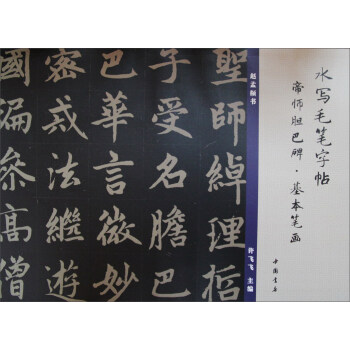 水写毛笔字帖
帝师胆巴碑·基本笔画
中国书店
赵孟頫书
许飞飞 主编
聖師綽理哲
子受名膽巴
巴華言微妙
密戒法繼遊
國遍參高僧